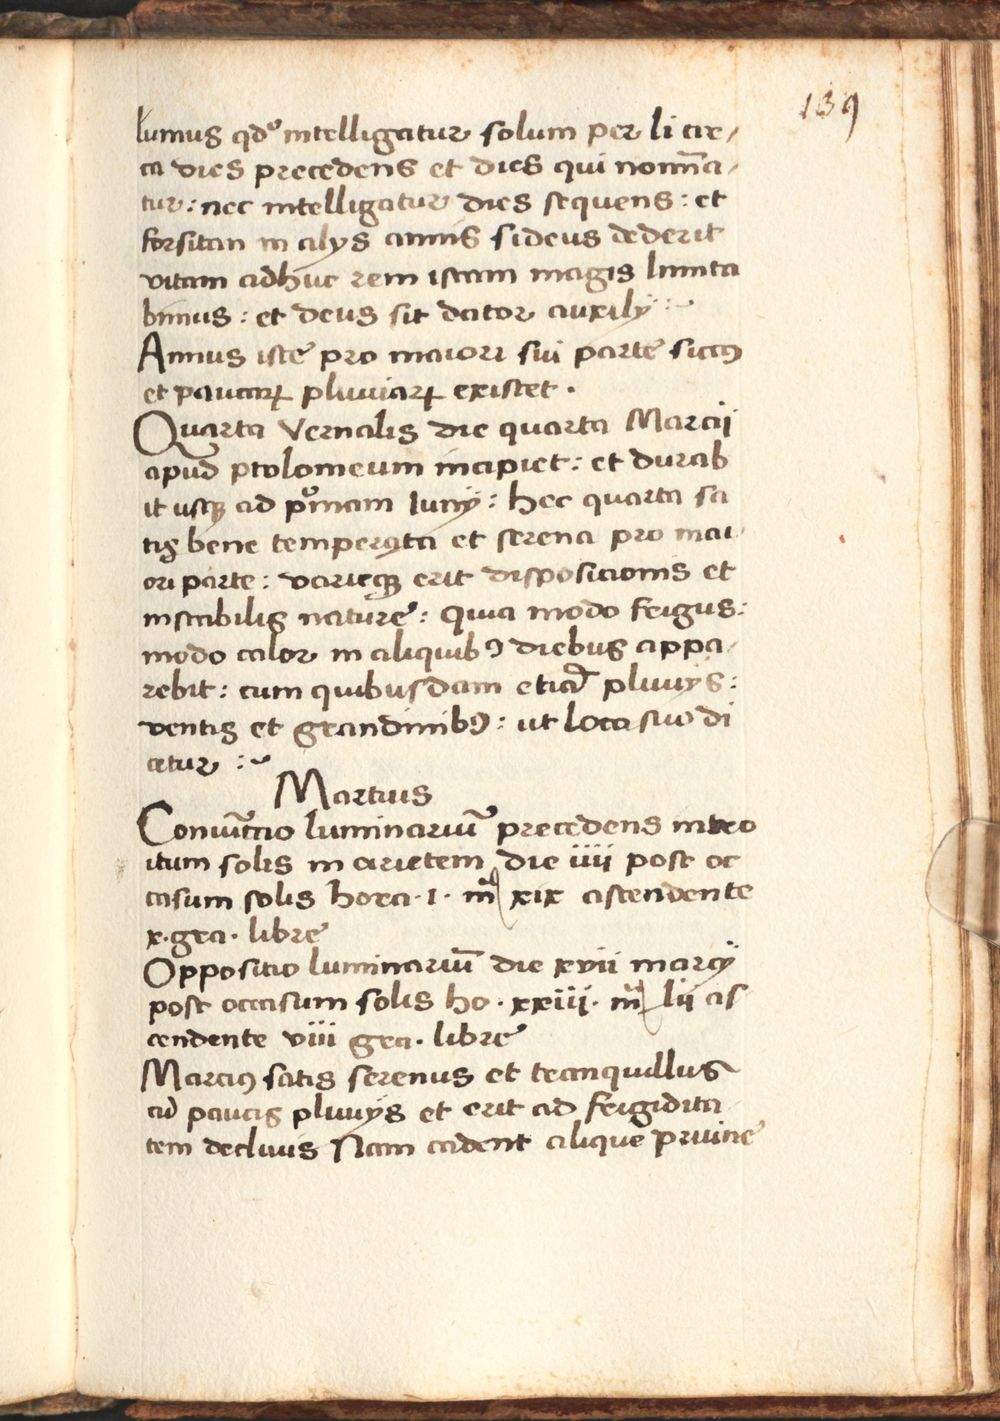 139
lumus qdo intelligatur solum per li cir/
ca dies precedens et dies qui nomīa/
tur: nec intelligatur dies sequens: et
forsitan in alijs annis si deus dederit
vitam adhuc rem istam magis limita
bimus: et deus sit dator auxilij :~
Annus iste pro maiori sui parte siccꝰ
et paucaꝝ pluuiaꝝ existet .
Quarta Vernalis die quarta Marcij
apud ptolomeum incipiet: et durab
it usqꝫ ad pomam Iunij: hec quarta sa
tis bene temperata et serena pro mai/
ori parte: varieqꝫ erit dispositionis et
instabilis nature: quia modo frigus:
modo calor in aliquibꝰ diebus appa/
rebit: cum quibusdam etiā pluuijs:
ventis et grandinibꝰ: ut loco suo di
cetur :~
Martius
Coniūctio luminariū precedens intro
itum solis in arietem die iiii post oc
casum solis hora · 1 · m̄ xix ascendente
x · gra · libre
Oppositio luminariū die xvii marcij
post occasum solis ho · xxiii · m̄ lii as
cendente viii gra · libre
Marciꝰ satis serenus et tranquillus
cū paucis pluuijs et erit ad frigidita
tem decliuis Nam cadent alique pruine